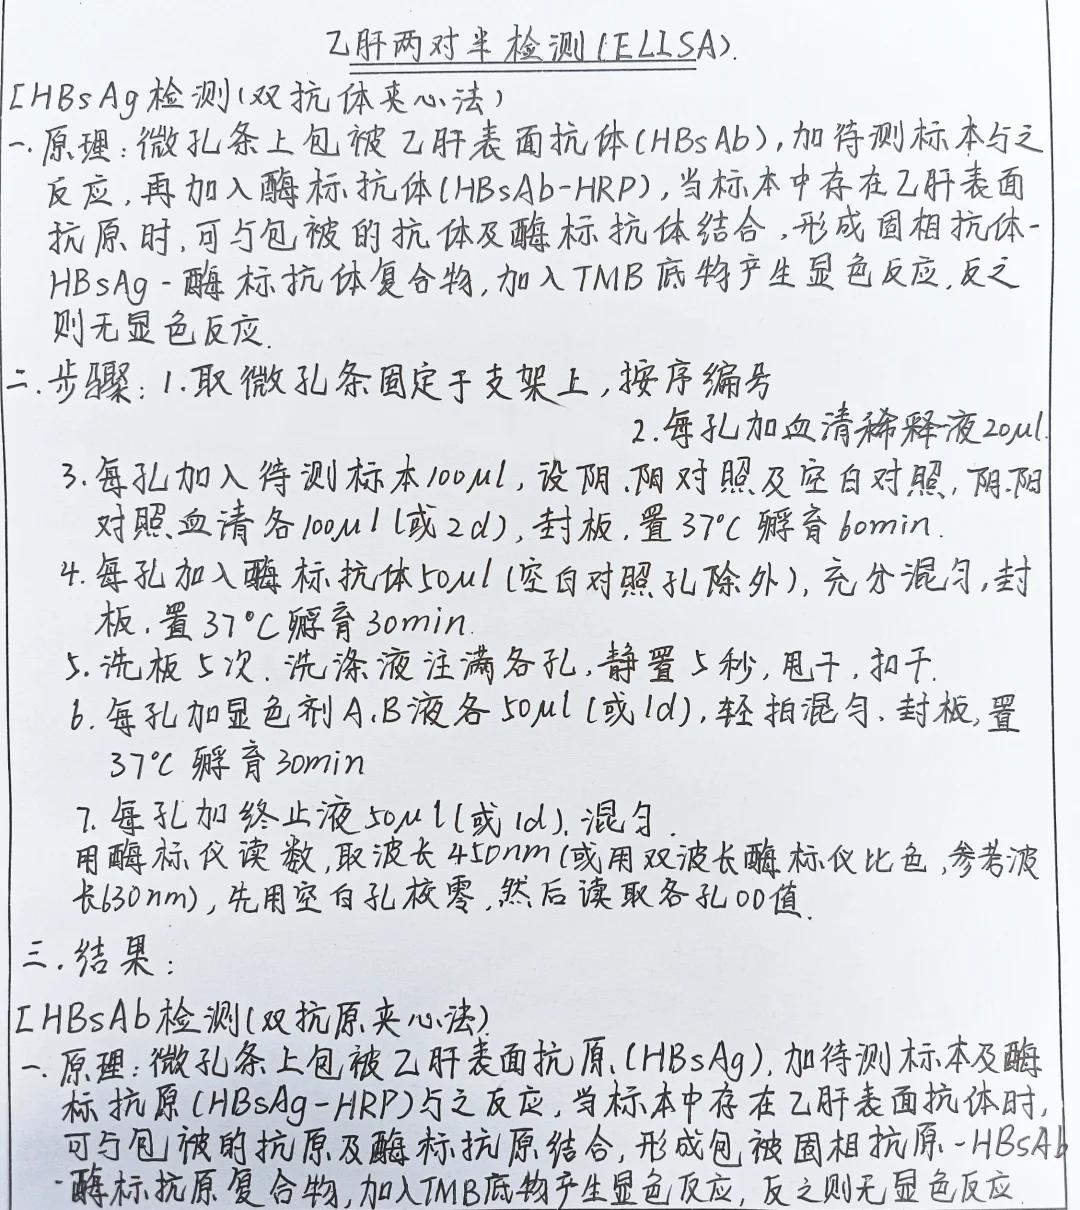 乙肝两对半检测(ELISA).
[HBsAg检测(双抗体夹心法)
一.原理:微孔条上包被乙肝表面抗体(HBsAb),加待测标本与之
反应,再加入酶标抗体(HBsAb-HRP),当标本中存在乙肝表面
抗原时,可与包被的抗体及酶标抗体结合,形成固相抗体-
HBsAg-酶标抗体复合物,加入TMB底物产生显色反应,反之
则无显色反应.
二.步骤:1.取微孔条固定于支架上,按序编号
2.每孔加血清稀释液20μl.
3.每孔加入待测标本100μl,设阴.阳对照及空白对照,阴.阳
对照血清各100μl(或2d),封板,置37℃孵育60min.
4.每孔加入酶标抗体50μl(空白对照孔除外),充分混匀,封
板,置37℃孵育30min.
5.洗板5次.洗涤液注满各孔,静置5秒,甩干,扣干.
6.每孔加显色剂A、B液各50μl(或1d),轻拍混匀、封板,置
37℃孵育30min
7.每孔加终止液50μl(或1d).混匀.
用酶标仪读数,取波长450nm(或用双波长酶标仪比色,参考波
长630nm),先用空白孔校零,然后读取各孔OD值.
三.结果:
[HBsAb检测(双抗原夹心法)
一.原理:微孔条上包被乙肝表面抗原(HBsAg),加待测标本及酶
标抗原(HBsAg-HRP)与之反应,当标本中存在乙肝表面抗体时,
可与包被的抗原及酶标抗原结合,形成包被固相抗原-HBsAb
-酶标抗原复合物,加入TMB底物产生显色反应,反之则无显色反应.